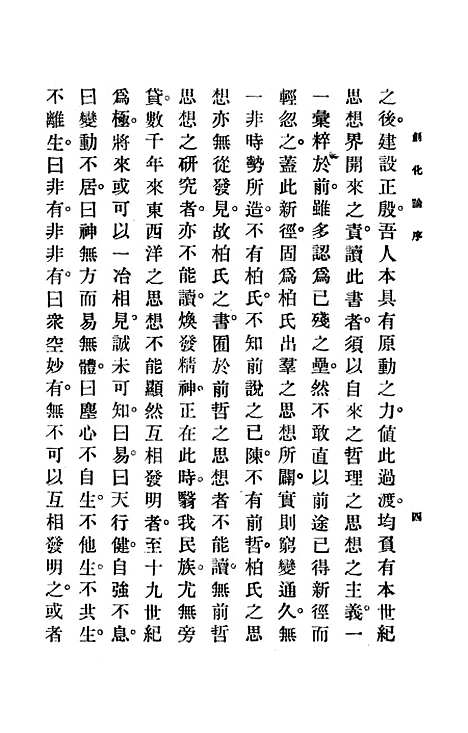 創化論序
四
之後。建設正殷。吾人本具有原動之力。値此過渡。均負有本世紀
思想界開來之責。讀此書者。須以自來之哲理之思想之主義。一
一彙粹於前。雖多認爲已殘之壘。然不敢直以前途已得新徑而
輕忽之。蓋此新徑。固爲柏氏出羣之思想所闢。實則窮變通久。無
一非時勢所造。不有柏氏。不知前說之已陳。不有前哲。柏氏之思
想亦無從發見。故柏氏之書。囿於前哲之思想者不能讀。無前哲
思想之硏究者。亦不能讀。煥發精神。正在此時。翳我民族。尤無旁
貸。數千年來東西洋之思想不能顯然互相發明者。至十九世紀
爲極。將來或可以一冶相見。誠未可知。曰易。曰天行健。自強不息。
曰變動不居。曰神無方而易無體。曰塵心不自生。不他生。不共生。
不離生。曰非有。非非有。曰衆空妙有。無不可以互相發明之。或者